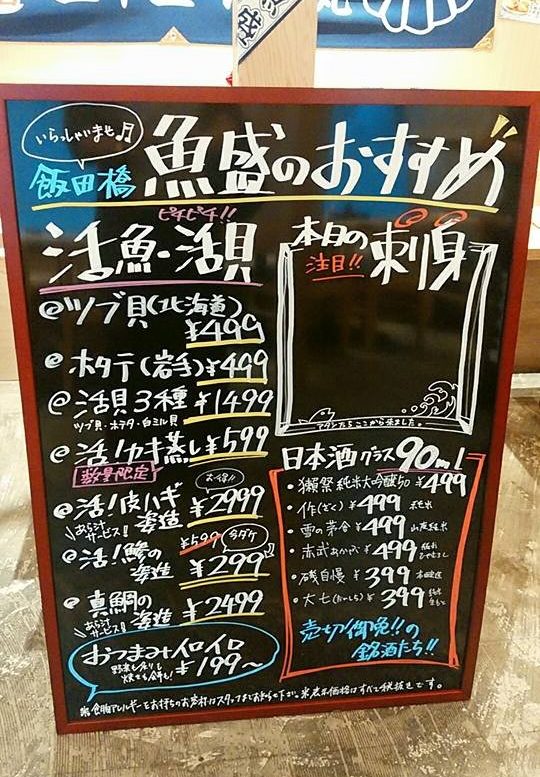 いらっしゃいませ♬
飯田橋 魚盛のおすすめ
ピチピチ!!
活魚・活貝
@ツブ貝(北海道)
¥499
@ホタテ(岩手)¥499
@活貝3種 ¥1499
ツブ貝・ホタテ・白ミル貝
@活!カキ蒸し ¥599
数量限定
お得!!
@活!皮ハギ
¥2999
あら汁
サービス!
¥599
今ダケ
@活!鯵の
¥299
@真鯛の
¥2499
あら汁
サービス!
おつまみイロイロ
¥199〜
本日の
注目!! 刺身
日本酒グラス90ml
・獺祭 純米大吟醸50 ¥499
・作(ざく) ¥499 純米
・雪の茅舎 ¥499 山廃純米
・赤武あかぶ ¥499 純米
・磯自慢 ¥399 本醸造
・大七(だいしち) ¥399 純米
生もと
売切御免!!の
銘酒たち!!
※食物アレルギーをお持ちのお客様はスタッフまでお知らせ下さい。※表示価格はすべて税抜きです。